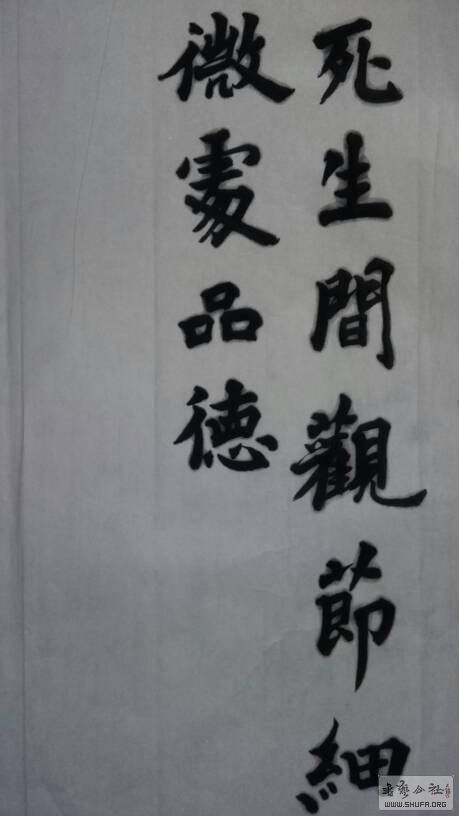 死生間觀節細
微處品德
WWW.SHUFA.ORG